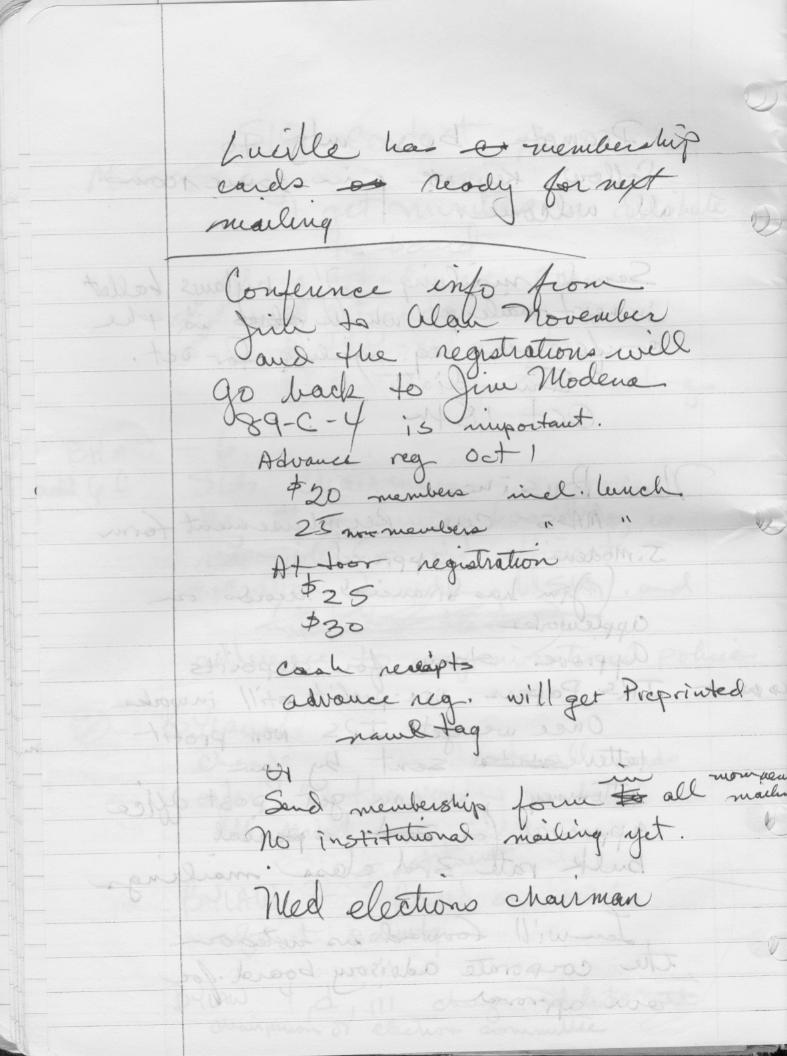 Lucille has membership
cards ready for next
mailing
Conference info from
Jim to Alan November
and the registrations will
go back to Jim Modena
89-C-4 is important.
Advance reg Oct 1
$20 members incl. lunch
25 non members " "
At door registration
$25
$30
cash receipts
advance reg. will get Preprinted
name tag
Send membership form in all
No institutional mailing yet.
elections chairman